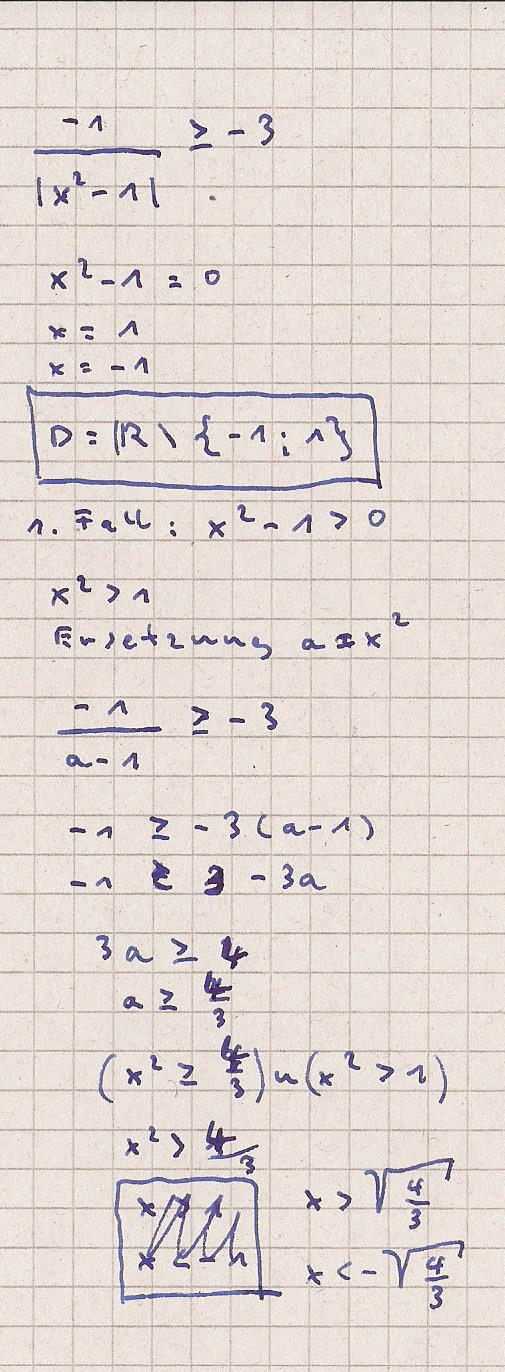 -1/|x²-1| ≥ -3
x²-1 = 0
x = 1
x = -1
D = ℝ \ {-1; 1}
1. Fall: x²-1 > 0
x² > 1
Ersetzung a = x²
-1/(a-1) ≥ -3
-1 ≥ -3(a-1)
-1 ≥ 3 - 3a
3a ≥ 4
a ≥ 4/3
(x² ≥ 4/3) u (x² > 1)
x² > 4/3
x > √(4/3)
x < -√(4/3)